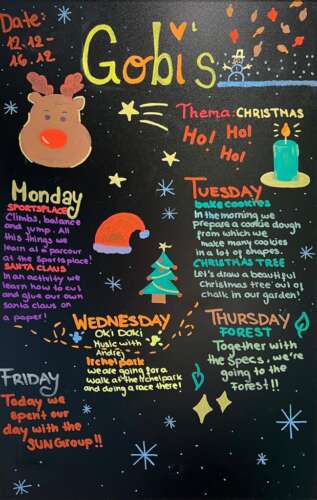 Date:
12.12-
16.12
Gobi's
Thema: CHRISTMAS
Ho! Ho!
Ho!
Monday
SPORTSPLACE
Climbs, balance
and jump. All
this things we
learn at a parcour
at the Sportsplace!
SANTA CLAUS
In an activity we
learn how to cut
and give our own
Santa claus on
a paper!
TUESDAY
bake cookies
In the morning we
prepare a cookie dough
from which we
make many cookies
in a lot of shapes.
CHRISTMAS TREE
Let's draw a beautiful
Christmas tree out of
chalk in our garden!
WEDNESDAY
Oki Doki
Music with
Andrej
Irchelpark
we are going for a
walk at the Irchelpark
and doing a race there!
THURSDAY
FOREST
Together with
the Specs. we're
going to the
Forest!!
FRIDAY
Today we
spent our
day with the
SUN Group!!